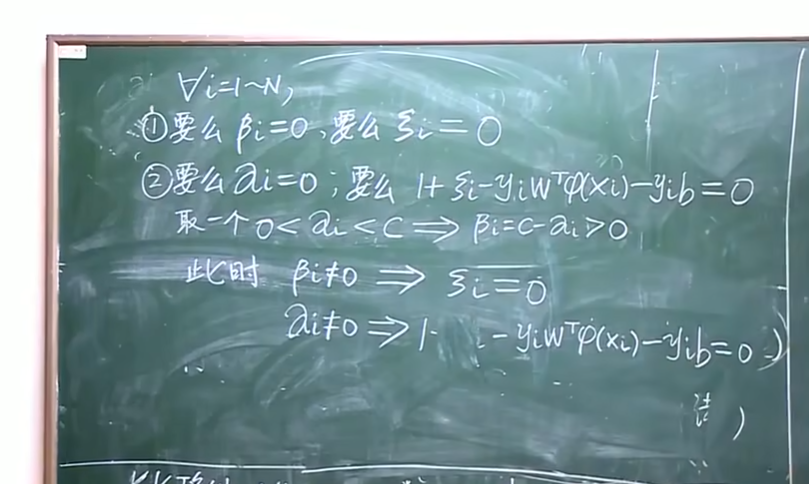 ∀i=1~N,
①要么 βi=0、要么 ξi=0
②要么 αi=0；要么 1+ξi-yiwᵀφ(xi)-yib=0
取一个 0<αi<C ⟹ βi=C-αi>0
此时 βi≠0 ⟹ ξi=0
αi≠0 ⟹ 1- - yiwᵀφ(xi)-yib=0